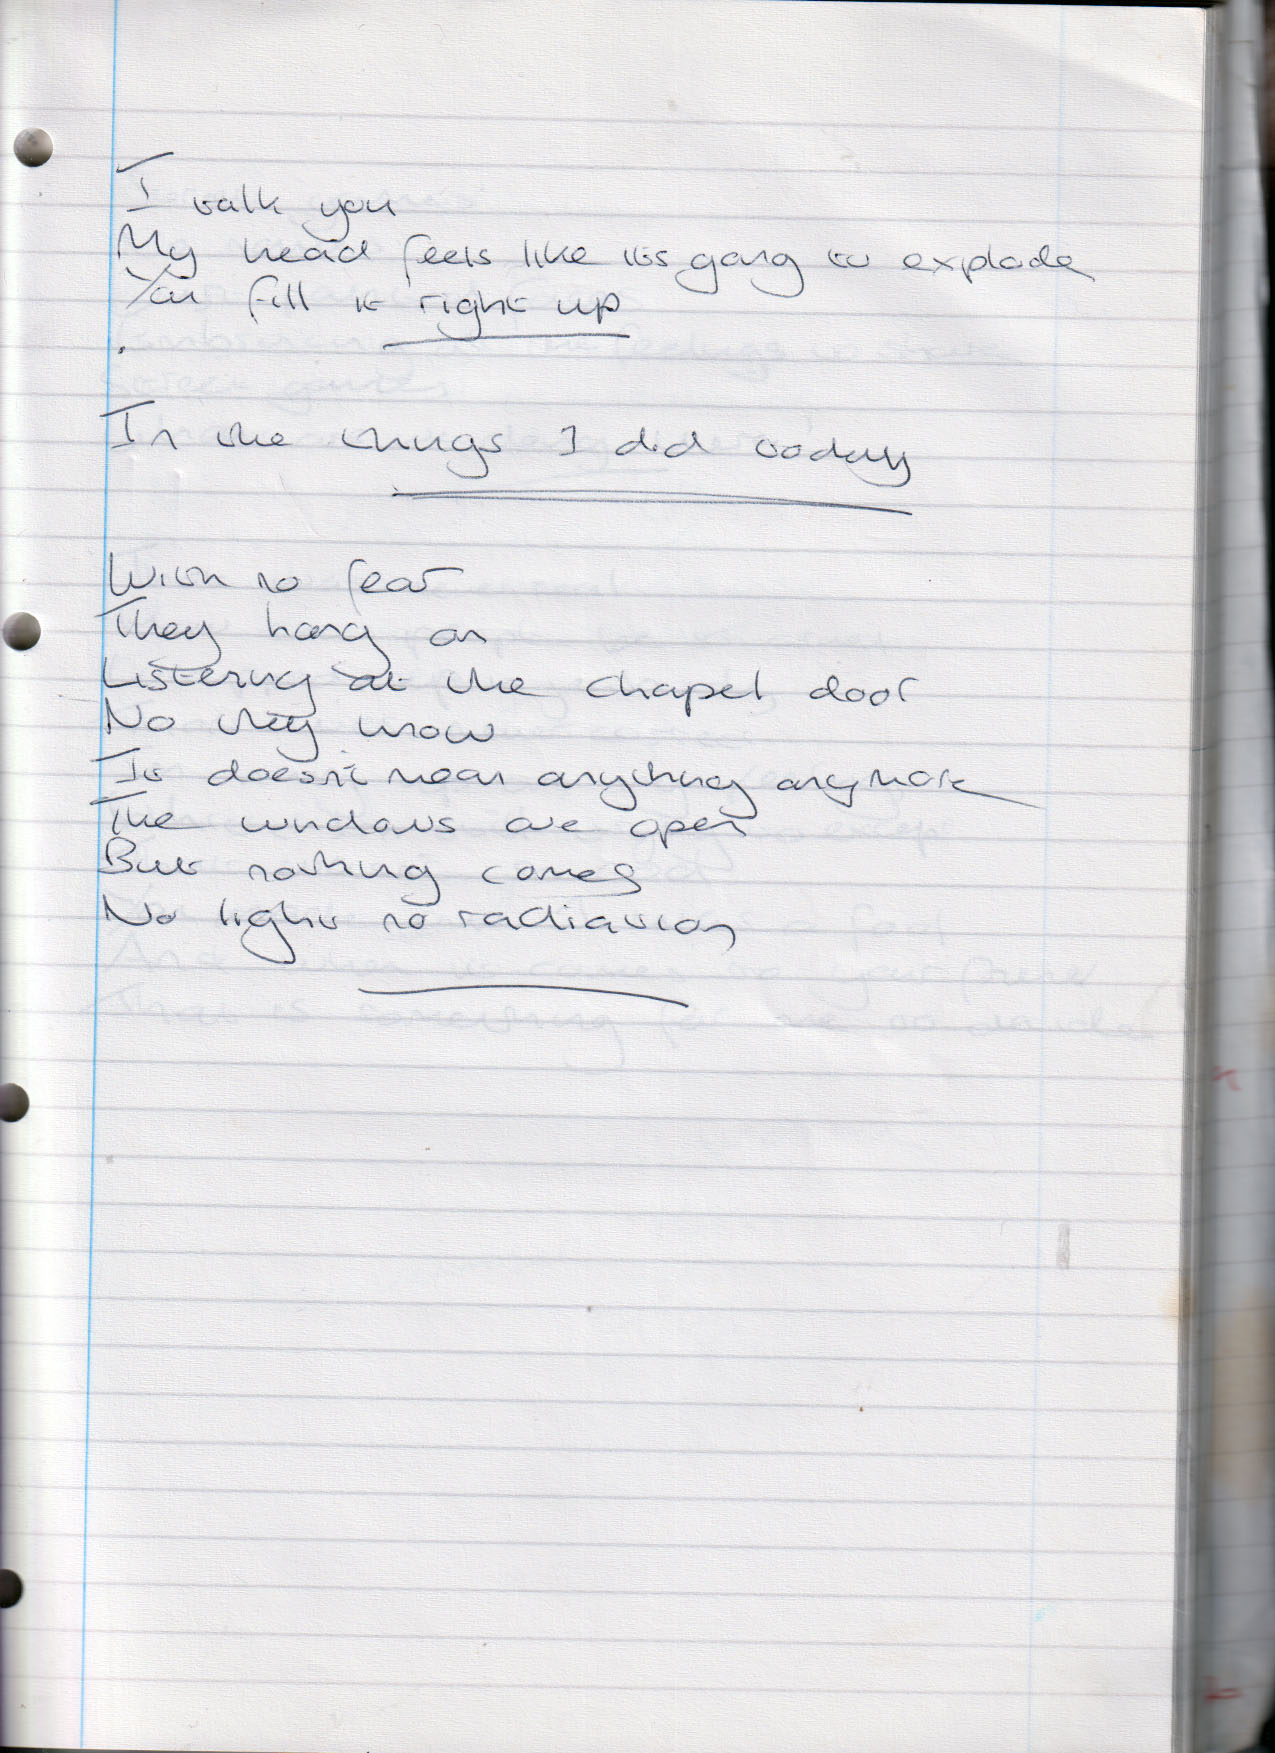 I talk you
My head feels like its going to explode
You fill it right up
In the things I did today
With no fear
They hang on
Listening at the chapel door
No they know
It doesn't mean anything anymore
The windows are open
But nothing comes
No light no radiation